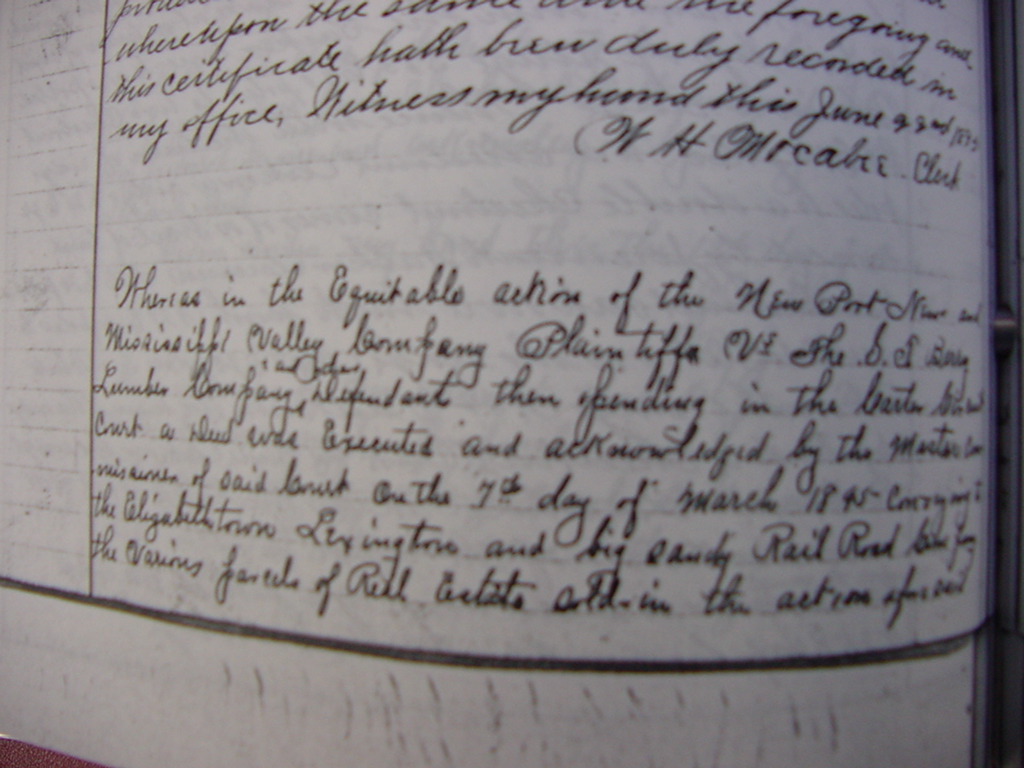 whereupon the same and the foregoing and
this certificate hath been duly recorded in
my office, Witness my hand this June 22nd
W H McCabe Clerk
Whereas in the Equitable action of the New Port News and
Mississippi Valley Company Plaintiffs Vs The S. S
Lumber Company, and others Defendants then pending in the Carter Circuit
Court a Deed was Executed and acknowledged by the Master Com
missioner of said Court on the 7th day of March 1895 Conveying to
the Elizabethtown Lexington and big sandy Rail Road Company
the Various parcels of Real Estate sold in the action aforesaid